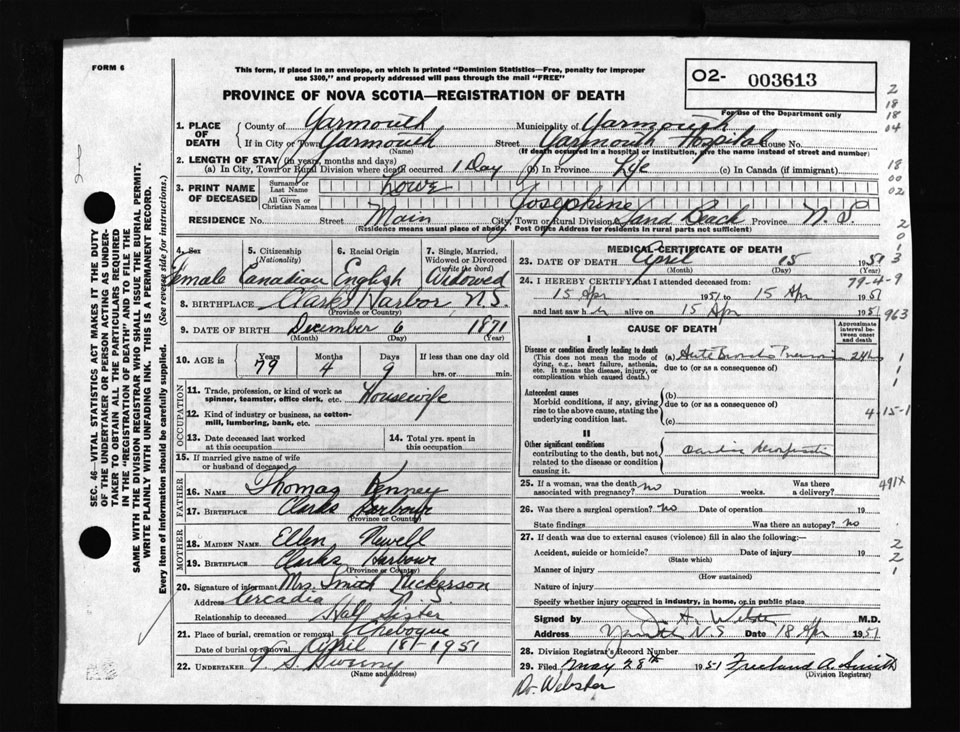 FORM 6
This form, if placed in an envelope, on which is printed "Dominion Statistics—Free, penalty for improper
use $300," and properly addressed will pass through the mail "FREE"
PROVINCE OF NOVA SCOTIA—REGISTRATION OF DEATH
O2- 003613
For use of the Department only
2
18
18
04
18
00
02
2
0
1
3
SEC. 46—VITAL STATISTICS ACT MAKES IT THE DUTY
OF THE UNDERTAKER OR PERSON ACTING AS UNDER-
TAKER TO OBTAIN ALL THE PARTICULARS REQUIRED
IN THE "REGISTRATION OF DEATH" AND TO FILE THE
SAME WITH THE DIVISION REGISTRAR WHO SHALL ISSUE THE BURIAL PERMIT.
WRITE PLAINLY WITH UNFADING INK. THIS IS A PERMANENT RECORD.
Every item of information should be carefully supplied. (See reverse side for instructions.)
1. PLACE OF DEATH
County of Yarmouth Municipality of Yarmouth
If in City or Town Yarmouth Street Yarmouth Hospital House No.
(Name) (If death occurred in a hospital or institution, give the name instead of street and number)
2. LENGTH OF STAY (in years, months and days)
(a) In City, Town or Rural Division where death occurred 1 Day (b) In Province Life (c) In Canada (if immigrant)
3. PRINT NAME OF DECEASED
Surname or Last Name Lowe
All Given or Christian Names Josephine
RESIDENCE No. Street Main City, Town or Rural Division Sand Beach Province N.S.
(Residence means usual place of abode. Post Office Address for residents in rural parts not sufficient)
4. Sex Female
5. Citizenship (Nationality) Canadian
6. Racial Origin English
7. Single, Married, Widowed or Divorced (write the word) Widowed
8. BIRTHPLACE Clarks Harbor, N.S.
(Province or Country)
9. DATE OF BIRTH December 6 1871
(Month) (Day) (Year)
10. AGE in Years Months Days If less than one day old
79 4 9 hrs. or min.
OCCUPATION
11. Trade, profession, or kind of work as spinner, teamster, office clerk, etc. Housewife
12. Kind of industry or business, as cotton-mill, lumbering, bank, etc.
13. Date deceased last worked at this occupation
14. Total yrs. spent in this occupation
15. If married give name of wife or husband of deceased
FATHER
16. NAME Thomas Kenney
17. BIRTHPLACE Clarks Harbour
(Province or Country)
MOTHER
18. MAIDEN NAME Ellen Newell
19. BIRTHPLACE Clarks Harbour
(Province or Country)
20. Signature of informant Mrs. Smith Nickerson
Address Arcadia N.S.
Relationship to deceased Half Sister
21. Place of burial, cremation or removal Chebogue
Date of burial or removal April 18th 1951
22. UNDERTAKER Sweeny
(Name and address)
MEDICAL CERTIFICATE OF DEATH
23. DATE OF DEATH April 15 1951
(Month) (Day) (Year)
24. I HEREBY CERTIFY that I attended deceased from: 79-4-9
15 Apr 1951 to 15 Apr 1951
and last saw her alive on 15 Apr 1951 963
CAUSE OF DEATH
Approximate interval between onset and death
I
Disease or condition directly leading to death (a)
(This does not mean the mode of dying, e.g., heart failure, asthenia, etc. It means the disease, injury, or complication which caused death.)
due to (or as a consequence of)
1
1
1
Antecedent causes (b)
Morbid conditions, if any, giving rise to the above cause, stating the underlying condition last.
due to (or as a consequence of)
(c)
4-15-1
II
Other significant conditions contributing to the death, but not related to the disease or condition causing it.
491X
25. If a woman, was the death associated with pregnancy? no Duration weeks. Was there a delivery?
26. Was there a surgical operation? no Date of operation 19
State findings Was there an autopsy? no
27. If death was due to external causes (violence) fill in also the following:—
Accident, suicide or homicide? Date of injury 19
(State which)
Manner of injury
(How sustained)
Nature of injury
2
2
1
Specify whether injury occurred in industry, in home, or in public place
Signed by M.D.
Address Yarmouth N.S Date 18 Apr 1951
28. Division Registrar's Record Number
29. Filed May 28th 1951 Freeland A. Smith
(Division Registrar)
Dr. Webster